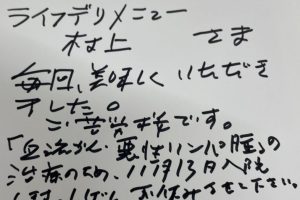 ライフデリメニュー
村上 さま
毎回、美味しくいただき
ました。
ご苦労様です。
「血液がん・悪性リンパ腫」の
治療のため、11月13日入院
お休みを下さい。